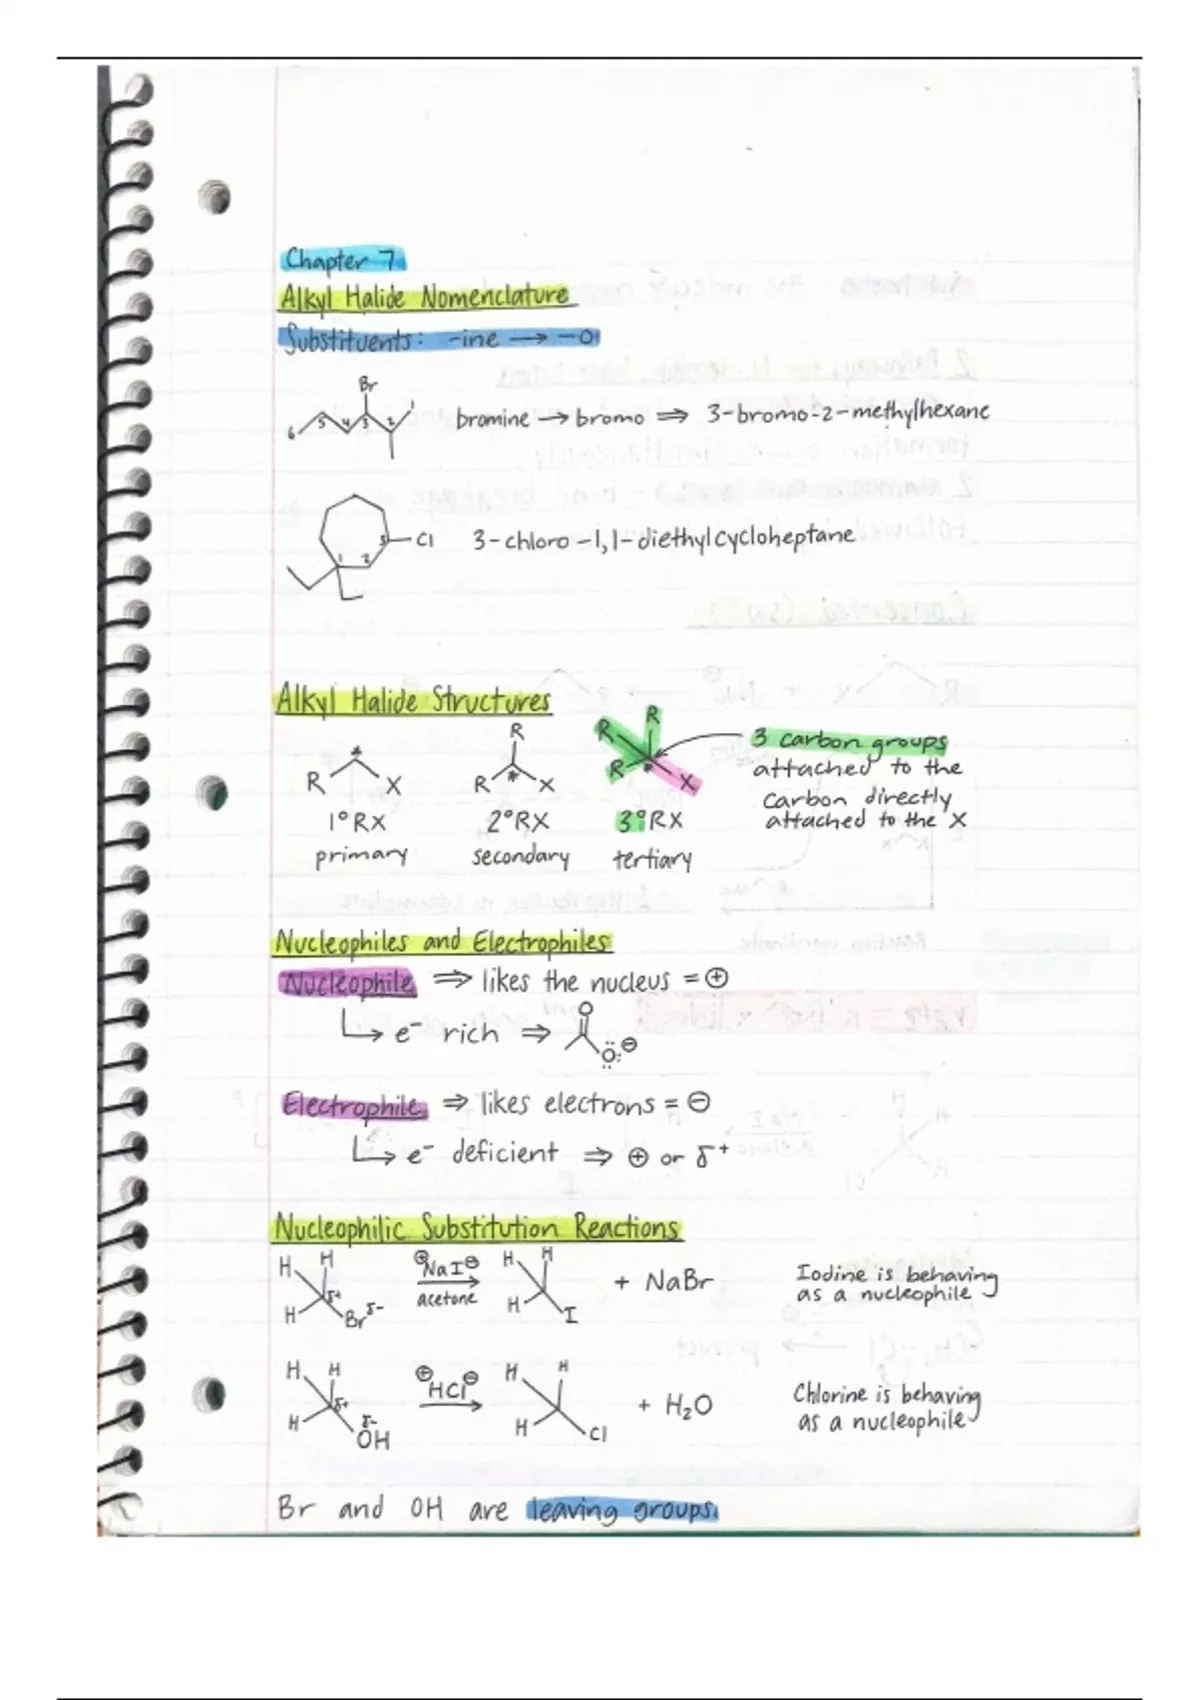 Chapter 7
Alkyl Halide Nomenclature
Substituents: -ine → -o
Br
6 5 4 3 2 1
bromine → bromo ⇒ 3-bromo-2-methylhexane
3 Cl
1 2
3-chloro-1,1-diethylcycloheptane
Alkyl Halide Structures
R * X
R R * X
R R R * X
3 carbon groups
attached to the
carbon directly
attached to the X
1° RX 2° RX 3° RX
primary secondary tertiary
Nucleophiles and Electrophiles
Nucleophile ⇒ likes the nucleus = ⊕
↳ e⁻ rich ⇒ O :Ö: ⊖
Electrophile ⇒ likes electrons = ⊖
↳ e⁻ deficient ⇒ ⊕ or δ⁺
Nucleophilic Substitution Reactions
H H H δ+ Br δ- ⊕NaI⊖ → acetone H H H I + NaBr
Iodine is behaving
as a nucleophile
H H H δ+ δ- OH ⊕HCl⊖ → H H H Cl + H₂O
Chlorine is behaving
as a nucleophile
Br and OH are leaving groups.